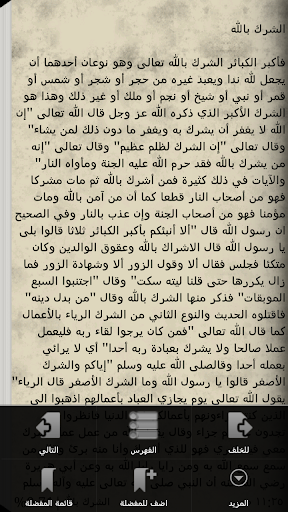 الشرك بالله
فأكبر الكبائر الشرك بالله تعالى وهو نوعان أحدهما أن
يجعل لله ندا ويعبد غيره من حجر أو شجر أو شمس أو
قمر أو نبي أو شيخ أو نجم أو ملك أو غير ذلك وهذا هو
الشرك الأكبر الذي ذكره الله عز وجل قال الله تعالى "إن
الله لا يغفر أن يشرك به ويغفر ما دون ذلك لمن يشاء"
وقال تعالى "إن الشرك لظلم عظيم" وقال تعالى "إنه
من يشرك بالله فقد حرم الله عليه الجنة ومأواه النار"
والآيات في ذلك كثيرة فمن أشرك بالله ثم مات مشركا
فهو من أصحاب النار قطعا كما أن من آمن بالله ومات
مؤمنا فهو من أصحاب الجنة وإن عذب بالنار وفي الصحيح
أن رسول الله قال "ألا أنبئكم بأكبر الكبائر ثلاثا قالوا بلى
يا رسول الله قال الاشراك بالله وعقوق الوالدين وكان
متكئا فجلس فقال ألا وقول الزور ألا وشهادة الزور فما
زال يكررها حتى قلنا ليته سكت" وقال "اجتنبوا السبع
الموبقات" فذكر منها الشرك بالله وقال "من بدل دينه"
فاقتلوه الحديث والنوع الثاني من الشرك الرياء بالأعمال
كما قال الله تعالى "فمن كان يرجوا لقاء ربه فليعمل
عملا صالحا ولا يشرك بعبادة ربه أحدا" أي لا يرائي
بعمله أحدا وقالصلى الله عليه وسلم "إياكم والشرك
الأصغر قالوا يا رسول الله وما الشرك الأصغر قال الرياء"
يقول الله تعالى يوم يجازي العباد بأعمالهم اذهبوا إلى
للخلف الفهرس التالي
المزيد اضف للمفضلة قائمة المفضلة